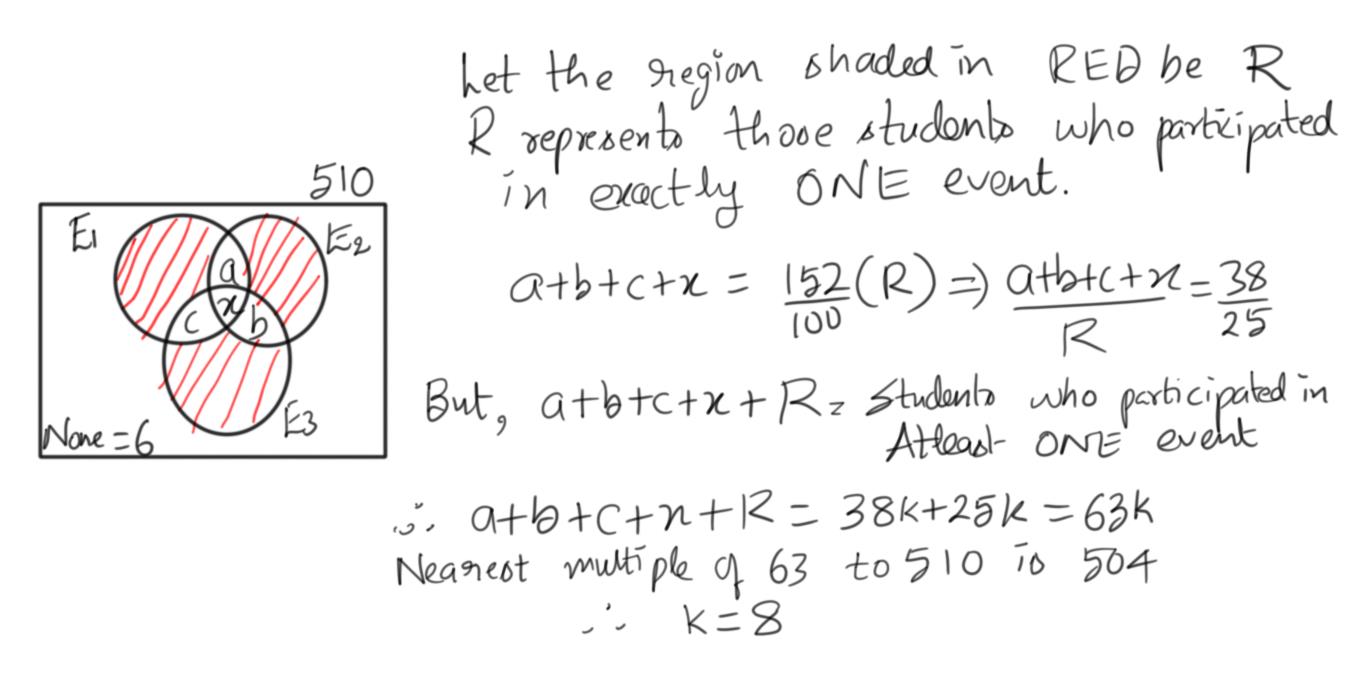 Let the region shaded in RED be R
R represents those students who participated
in exactly ONE event.
510
E1
E2
a
x
c
b
E3
None = 6
a+b+c+x = 152/100 (R) ⇒ a+b+c+x/R = 38/25
But, a+b+c+x+R = Students who participated in
Atleast ONE event
∴ a+b+c+x+R = 38k+25k = 63k
Nearest multiple of 63 to 510 is 504
∴ k = 8